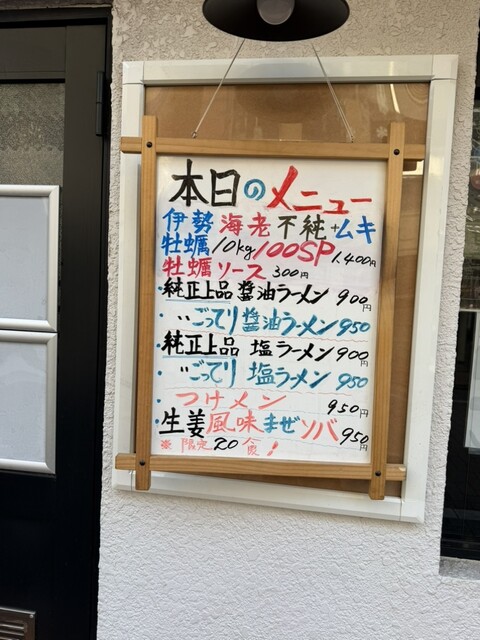 本日のメニュー
伊勢海老不純+ムキ
牡蠣10kg100SP1.400円
牡蠣ソース300円
・純正上品 醤油ラーメン 900円
・〃ごってり醤油ラーメン950
純正上品 塩ラーメン900円
・〃ごってり 塩ラーメン950
・つけメン 950円
・生姜風味まぜソバ950円
※限定20食!